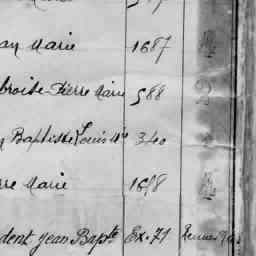 an Marie 1687
broise-Pierre Marie 588
Baptiste Louis Mie 340
re Marie 1618
dent Jean Bapte Ex. 71